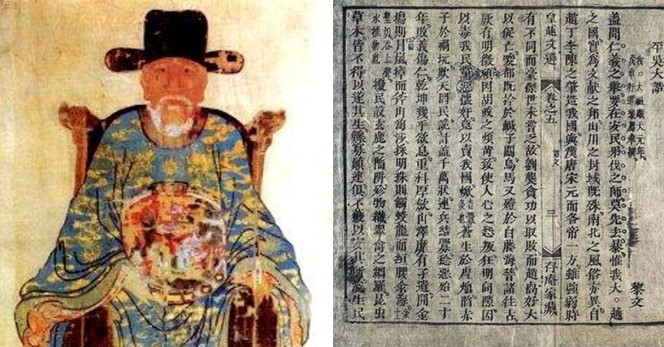 平吳大誥
黎文
蓋聞仁義之舉要在安民弔伐之師莫先去暴惟我大越
之國實為文獻之邦山川之封域既殊南北之風俗亦異自
趙丁李陳之肇造我國與漢唐宋元而各帝一方雖強弱時
皇越文選 卷之五 三 存庵家藏
有不同而豪傑世未嘗乏故劉龑貪功以取敗而趙卨好大
以促亡唆都既擒於鹹子關烏馬又殪於白藤海嵇諸往古
厥有明徵頃因胡政之煩苛致使人心之怨叛狂明伺隙因
以毒我民惡黨懷奸竟以賣我國焮蒼生於虐焰陷赤
子於禍坑欺天罔民詭計蓋千萬狀連兵結釁稔惡殆二十
年敗義傷仁乾坤幾乎欲息重科厚歛山澤靡有孑遺開金
場則冒嵐瘴而斧山淘沙採明珠則觸蛟龍而絙腰汆海
擾民設玄鹿之陷阱殄物織翠禽之網羅昆虫
草木皆不得以遂其生鰥寡顛連俱不獲以安其所浚生民